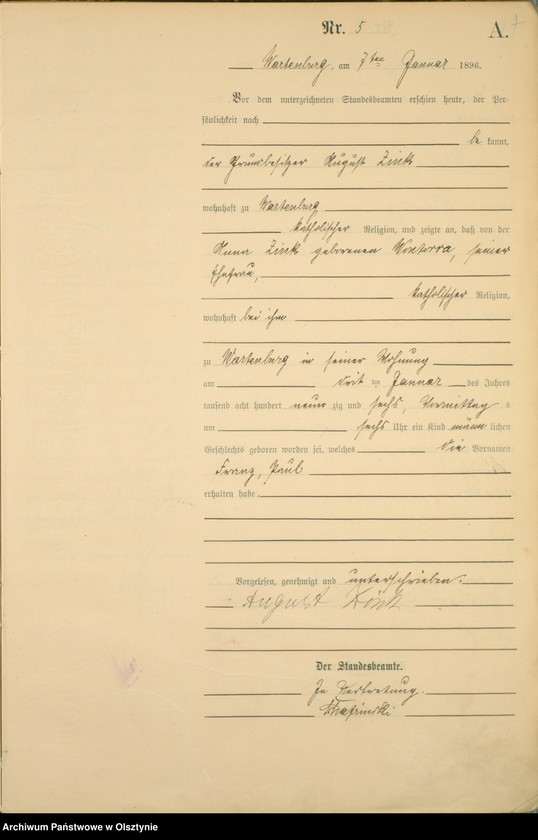 Nr. 5
A.
Wartenburg, am 7ten Januar 1896.
Vor dem unterzeichneten Standesbeamten erschien heute, der Per-
sönlichkeit nach
be kannt,
der Grundbesitzer August Zink
wohnhaft zu Wartenburg
katholischer Religion, und zeigte an, daß von der
Anna Zink geborenen Wontorra, seiner
Ehefrau,
katholischer Religion,
wohnhaft bei ihm
zu Wartenburg in seiner Wohnung
am drit ten Januar des Jahres
tausend acht hundert neun zig und sechs, Vormittag s
um sechs Uhr ein Kind männ lichen
Geschlechts geboren worden sei, welches die Vornamen
Franz, Paul
erhalten habe.
Vorgelesen, genehmigt und unterschrieben.
August Zink
Der Standesbeamte.
In Vertretung.
Archiwum Państwowe w Olsztynie